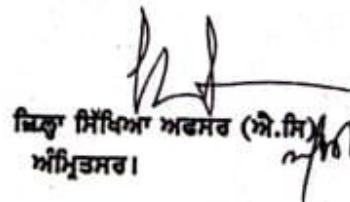 ਜ਼ਿਲ੍ਹਾ ਸਿੱਖਿਆ ਅਫਸਰ (ਐ.ਸਿ)
ਅੰਮ੍ਰਿਤਸਰ।